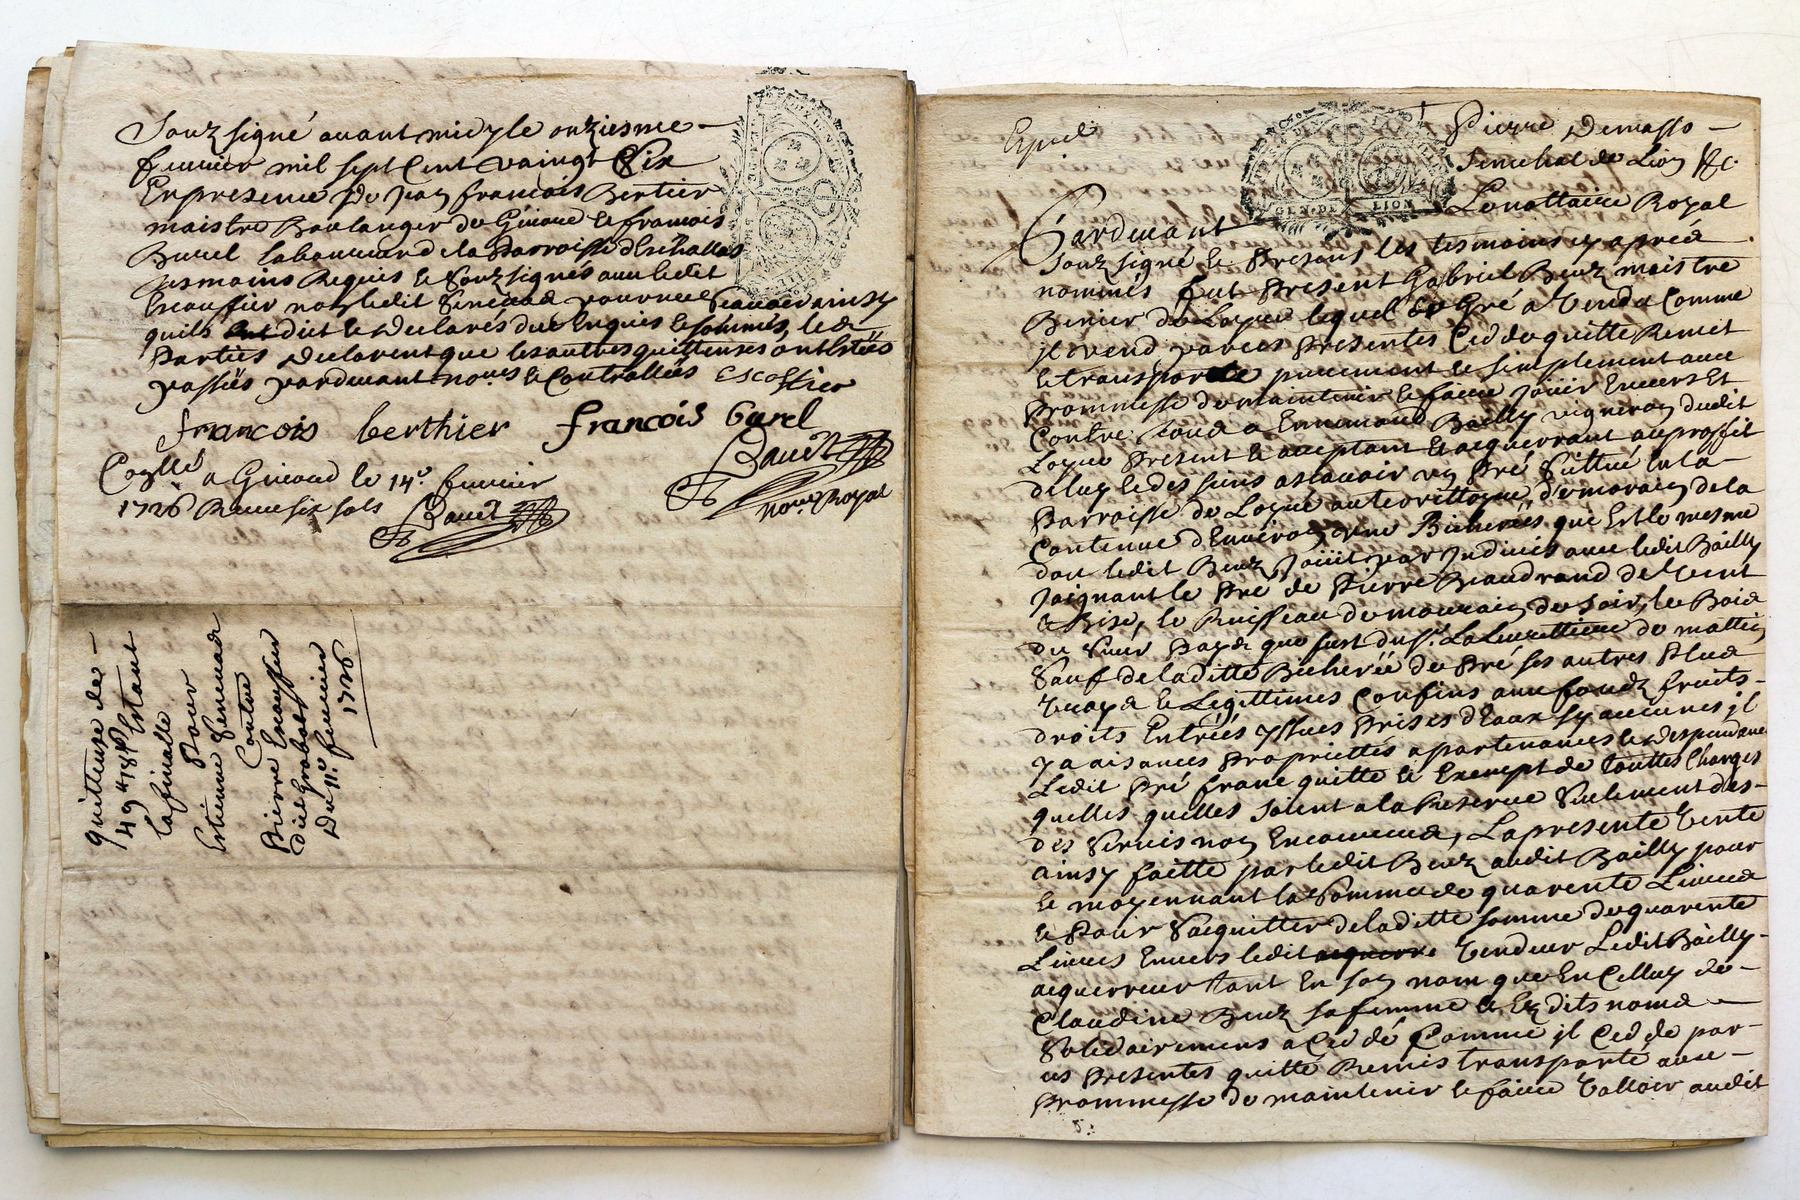 Souz signé avant midy le onziesme
feuvrier mil sept Cent vaingt Six
En presence de François Bertier
maistre Boulanger de Givord et francois
Burel laboureur de la Parroisse d'Eschallas
Tesmoins Requis et Souz signés avec ledit
Escoffier non ledit
quils ont dit et declarés de ce Enquis et sommés, les
Parties declarent que les autres quittenses ont Estées
passées pardevant nous et Controllées Escoffier
françois berthier françois burel
Baudt
no.re Royal
Co.llé a Givord le 14.e feuvrier
1726 Receu six sols Baudt
quittense de
49 # 18 s Estant
la finalle
Pour
Estienne
Contre
Pierre Escoffier
dit
Du 11.e feuvrier
1726
GEN. DE LION
Pierre Demasso
Senechal de Lion &c.
Pardevant Le nottaire Royal
Souz signé et Presens les tesmoins cy aprés
nommés fut Present Gabriel Beuz maistre
de Loyre lequel de Gré a Vendu Comme
il vend par ces Presentes Cedde quitte Remet
et transporte purement et simplement avec
Prommesse de maintenir et faire Jouir Envers Et
Contre tous a Bailly vigneron dudit
Loyre Present et acceptant et acquerrant au proffit
de luy et des siens ascavoir un Pré Sittué en la
Parroisse de Loyre au territtoire de de la
Contenue d'Environ une Bicherée qui Est le mesme
dont ledit Beuz Jouit par Indivis avec ledit Bailly
Joignant le Pré de Pierre Beaudrand de Vent
& Bise, le Ruisseau de de soir, le Bois
du Sieur que fust du S.r de mattin
Sauf de laditte Bicherée de Pré ses autres Plus
Vrays et Legittimes Confins avec fonds fruits
droits Entrées yssues Prises d'Eaux sy aucunes il
y a aisances Proprietés apartenances et despendances
Ledit Pré franc quitte et Exempt de touttes Charges
quelles quelles soient a la Reserve Seulement des
des Servis non Encourus, La presente Vente
ainsy faitte par ledit Beuz audit Bailly pour
et moyennant la Somme de quarente Livres
et Pour S'acquitter de laditte somme de quarente
Livres Envers ledit Vendeur Ledit Bailly
acquerreur tant En son nom que En Celluy de
Claudine Beuz sa femme et Ez dits noms
Solidairement a Ceddé Comme il Cedde par
ces Presentes quitté Remis transporté avec
Prommesse de maintenir et faire Valloir audit